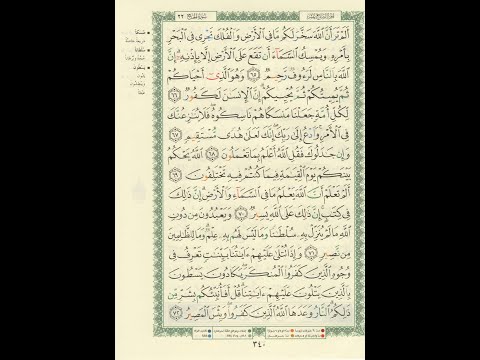 الجزء السابع عشر
٢٢
سورة الحج
أَلَمْ تَرَ أَنَّ ٱللَّهَ سَخَّرَ لَكُم مَّا فِي ٱلْأَرْضِ وَٱلْفُلْكَ تَجْرِي فِي ٱلْبَحْرِ
بِأَمْرِهِۦ وَيُمْسِكُ ٱلسَّمَآءَ أَن تَقَعَ عَلَى ٱلْأَرْضِ إِلَّا بِإِذْنِهِۦٓ إِنَّ
ٱللَّهَ بِٱلنَّاسِ لَرَءُوفٌ رَّحِيمٌ ٦٥ وَهُوَ ٱلَّذِيٓ أَحْيَاكُمْ
ثُمَّ يُمِيتُكُمْ ثُمَّ يُحْيِيكُمْ إِنَّ ٱلْإِنسَٰنَ لَكَفُورٌ ٦٦
لِّكُلِّ أُمَّةٍ جَعَلْنَا مَنسَكًا هُمْ نَاسِكُوهُ فَلَا يُنَٰزِعُنَّكَ
فِي ٱلْأَمْرِ وَٱدْعُ إِلَىٰ رَبِّكَ إِنَّكَ لَعَلَىٰ هُدًى مُّسْتَقِيمٍ ٦٧
وَإِن جَٰدَلُوكَ فَقُلِ ٱللَّهُ أَعْلَمُ بِمَا تَعْمَلُونَ ٦٨ ٱللَّهُ يَحْكُمُ
بَيْنَكُمْ يَوْمَ ٱلْقِيَٰمَةِ فِيمَا كُنتُمْ فِيهِ تَخْتَلِفُونَ ٦٩
أَلَمْ تَعْلَمْ أَنَّ ٱللَّهَ يَعْلَمُ مَا فِي ٱلسَّمَآءِ وَٱلْأَرْضِ إِنَّ ذَٰلِكَ
فِي كِتَٰبٍ إِنَّ ذَٰلِكَ عَلَى ٱللَّهِ يَسِيرٌ ٧٠ وَيَعْبُدُونَ مِن دُونِ
ٱللَّهِ مَا لَمْ يُنَزِّلْ بِهِۦ سُلْطَٰنًا وَمَا لَيْسَ لَهُم بِهِۦ عِلْمٌ وَمَا لِلظَّٰلِمِينَ
مِن نَّصِيرٍ ٧١ وَإِذَا تُتْلَىٰ عَلَيْهِمْ ءَايَٰتُنَا بَيِّنَٰتٍ تَعْرِفُ فِي
وُجُوهِ ٱلَّذِينَ كَفَرُوا۟ ٱلْمُنكَرَ يَكَادُونَ يَسْطُونَ
بِٱلَّذِينَ يَتْلُونَ عَلَيْهِمْ ءَايَٰتِنَا قُلْ أَفَأُنَبِّئُكُم بِشَرٍّ مِّن
ذَٰلِكُمُ ٱلنَّارُ وَعَدَهَا ٱللَّهُ ٱلَّذِينَ كَفَرُوا۟ وَبِئْسَ ٱلْمَصِيرُ ٧٢
٣٤٠